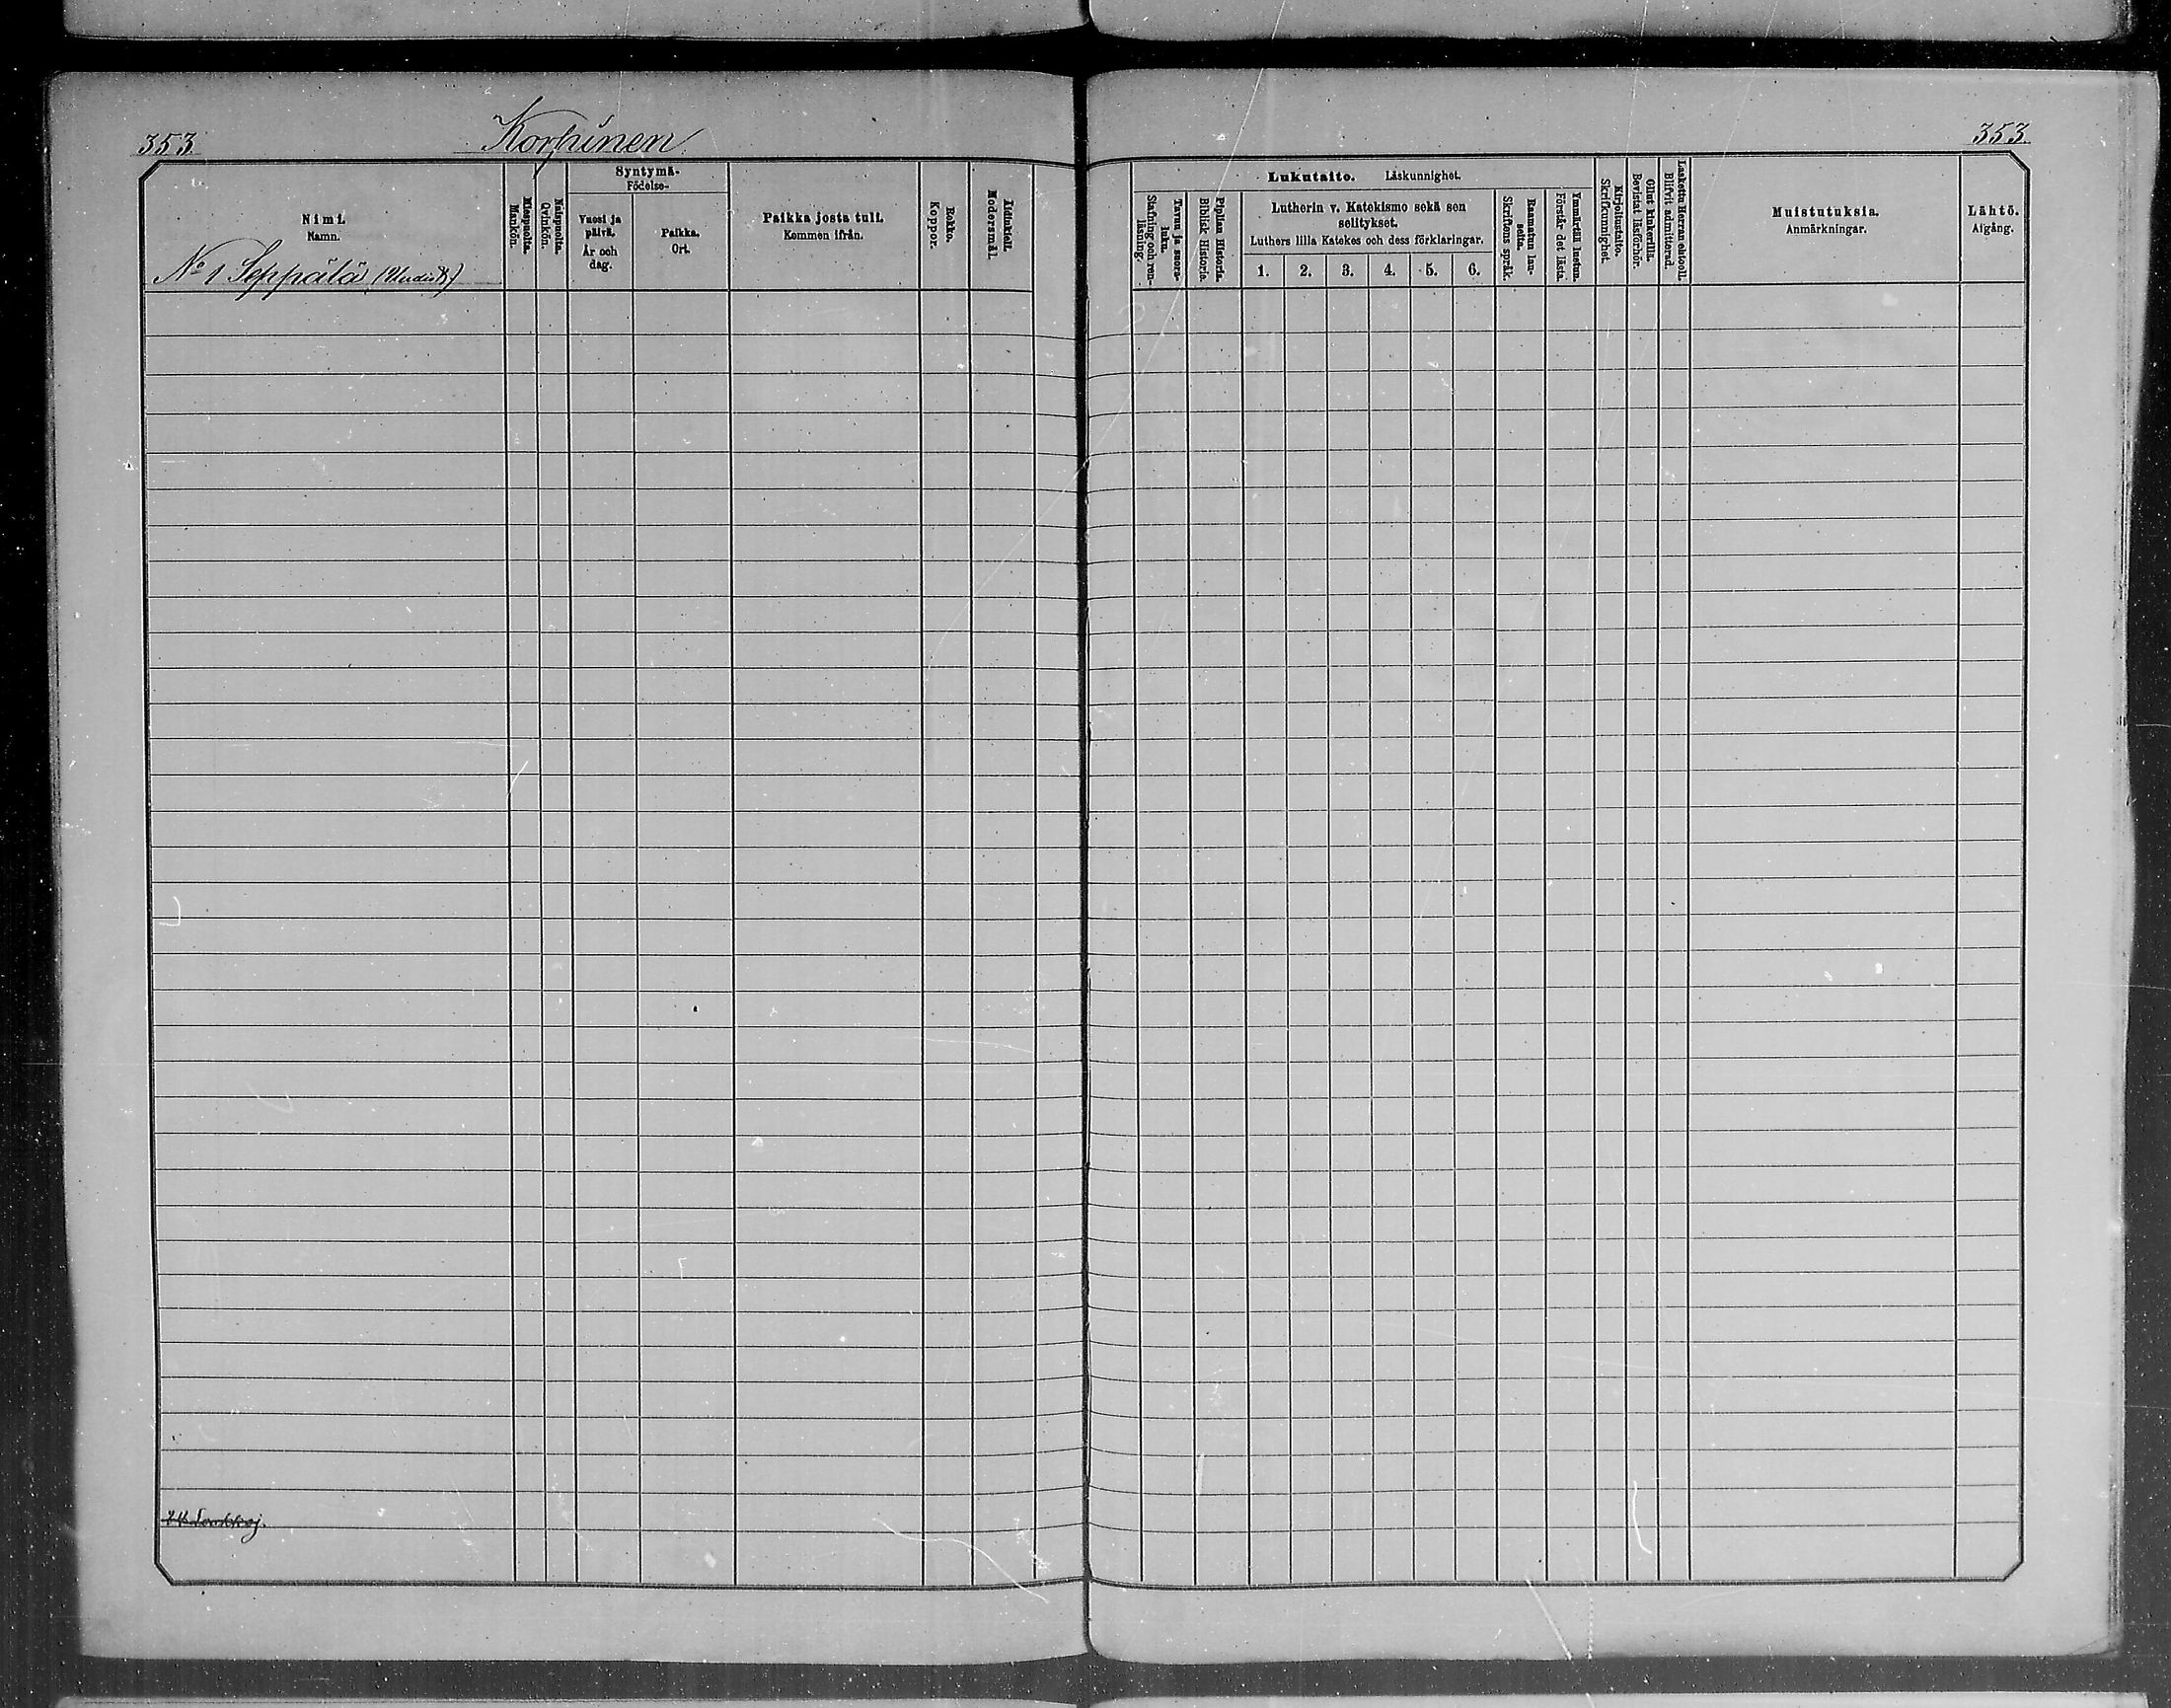 353
Korpinen
353
Nimi.
Namn.
Miespuolta.
Mankön.
Naispuolta.
Qvinkön.
Syntymä-
Födelse-
Vuosi ja
päivä.
År och
dag.
Paikka.
Ort.
Paikka josta tuli.
Kommen ifrån.
Rokko.
Koppor.
Äidinkieli.
Modersmål.
Lukutaito. Läskunnighet.
Tavuu ja suora-
luku.
Stafning och ren-
läsning.
Piplian Historia.
Biblisk Historie.
Lutherin v. Katekismo sekä sen
selitykset.
Luthers lilla Katekes och dess förklaringar.
1. 2. 3. 4. 5. 6.
Raamatun lau-
seita.
Skriftens språk.
Ymmärtää luetun.
Förstår det lästa.
Kirjoitustaito.
Skrifkunnighet.
Ollut kinkerillä.
Bevistat läsförhör.
Laskettu Herran ehtooll.
Blifvit admitterad.
Muistutuksia.
Anmärkningar.
Lähtö.
Afgång.
No 1 Seppälä